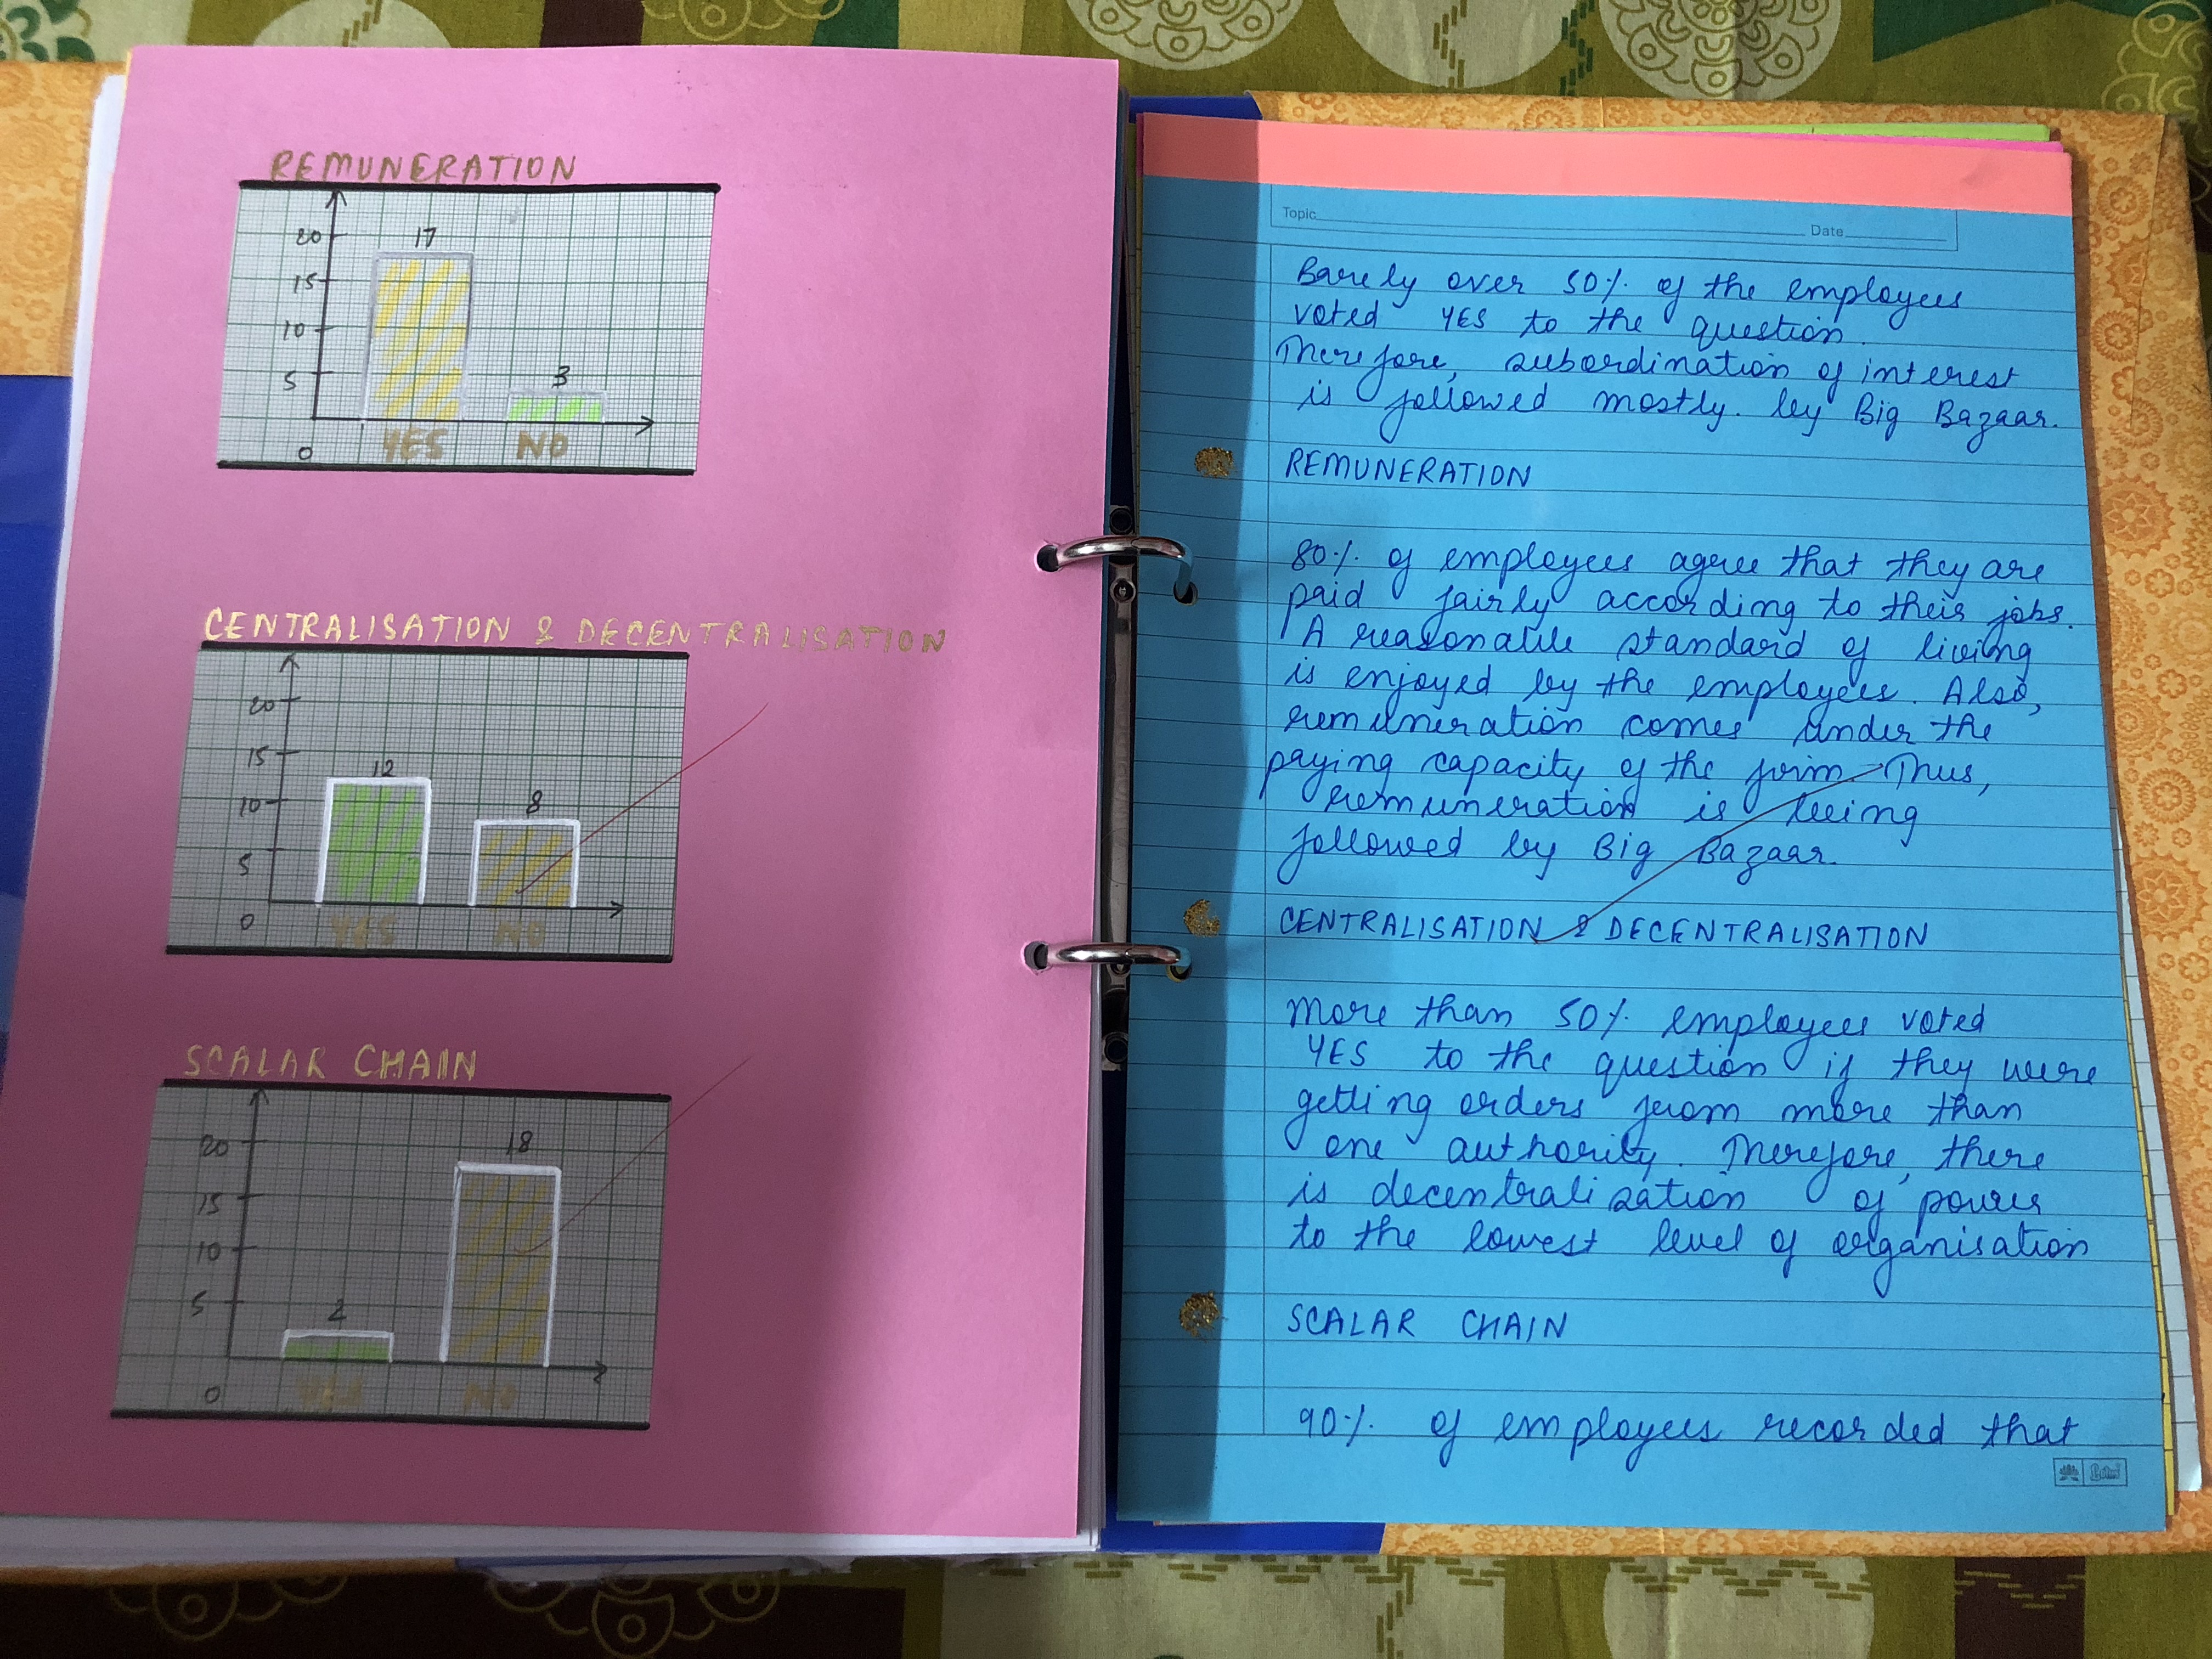 REMUNERATION
20
17
15
10
5
3
0
YES NO
CENTRALISATION & DECENTRALISATION
20
15
12
10
8
5
0
YES NO
SCALAR CHAIN
20
18
15
10
5
2
0
YES NO
Topic Date
Barely over 50% of the employees
voted YES to the question.
Therefore, subordination of interest
is followed mostly. by Big Bazaar.
REMUNERATION
80% of employees agree that they are
paid fairly according to their jobs.
A reasonable standard of living
is enjoyed by the employees. Also,
remuneration comes under the
paying capacity of the firm. Thus,
remuneration is being
followed by Big Bazaar.
CENTRALISATION & DECENTRALISATION
More than 50% employees voted
YES to the question if they were
getting orders from more than
one authority. Therefore, there
is decentralization of power
to the lowest level of organisation
SCALAR CHAIN
90% of employees recorded that